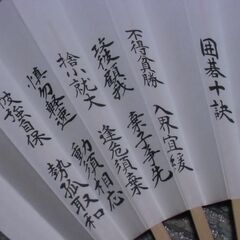 囲碁十訣
不得貪勝
入界宜緩
攻彼顧我
棄子争先
捨小就大
逢危須棄
慎勿軽速
動須相応
彼強自保
勢孤取和